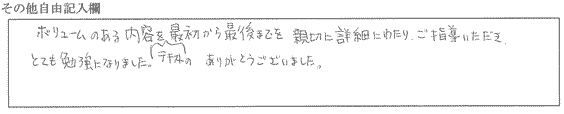 その他自由記入欄
ボリュームのある内容を最初から最後までを 親切に詳細にわたり、ご指導いただき、
とても勉強になりました。テキストの ありがとうございました。